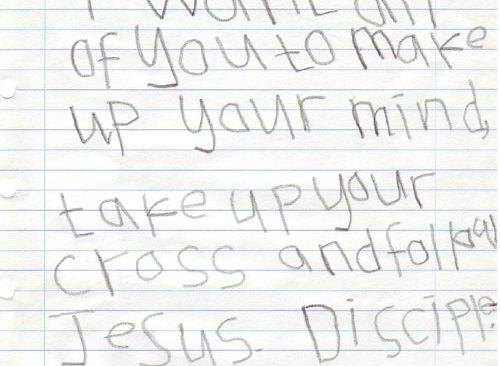 I want all
of you to make
up your mind,
take up your
cross and follow
Jesus. Disciple.